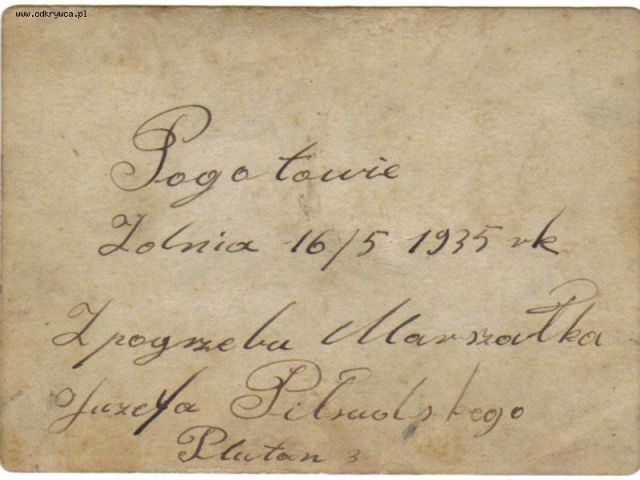 www.odkrywca.pl
Pogotowie
Zdnia 16/5 1935 rk
Z pogrzebu Marszałka
Juzefa Piłsudskego
Plutan 3